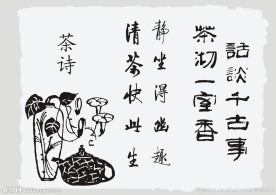 話談千古事
茶沏一室香
静坐得幽趣
清茶快此生
茶诗